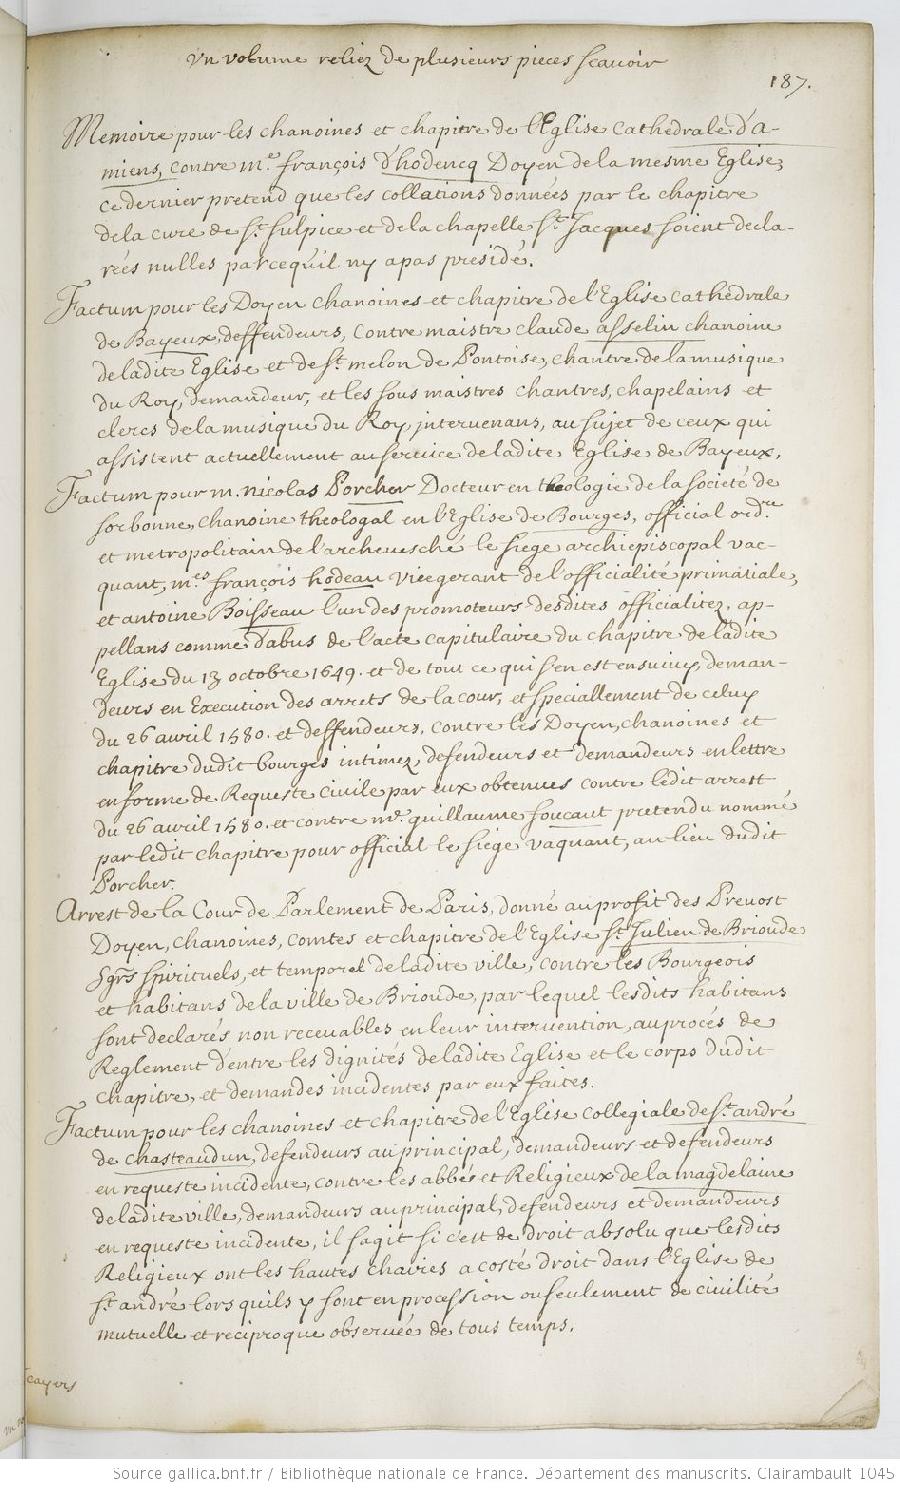 Un volume reliez de plusieurs pieces scavoir
187.
Memoire pour les chanoines et chapitre de l'Eglise Cathedrale d'a-
miens, contre m.e françois d'hodencq Doyen de la mesme Eglise,
ce dernier pretend que les collations données par le chapitre
de la cure de St. Sulpice et de la chapelle St. Jacques soient decla-
rées nulles parcequ'il ny a pas presidé.
Factum pour les Doyen chanoines et chapitre de l'Eglise Cathedrale
de Bayeux, deffendeurs, contre maistre claude asselin chanoine
de ladite Eglise et de St. melon de Pontoise, chantre de la musique
du Roy, demandeur, et les sous maistres chantres, chapelains et
clercs de la musique du Roy, intervenans, au sujet de ceux qui
assistent actuellement au service de ladite Eglise de Bayeux.
Factum pour m. nicolas Porcher Docteur en theologie de la societé de
sorbonne, chanoine theologal en l'Eglise de Bourges, official ord.re
et metropolitain de l'archevesché le siege archiepiscopal vac-
quant, m.es françois hodeau vicegerant de l'officialité primatiale,
et antoine Boisseau l'un des promoteurs desdites officialitez, ap-
pellans comme d'abus de l'acte capitulaire du chapitre de ladite
Eglise du 13 octobre 1649. et de tout ce qui s'en est ensuivy, deman-
deurs en Execution des arrets de la cour, et speciallement de celuy
du 26 avril 1580. et deffendeurs, contre les Doyen, chanoines et
chapitre dudit bourges intimez, defendeurs et demandeurs en lettre
en forme de Requeste civile par eux obtenues contre ledit arrest
du 26 avril 1580. et contre me. guillaume foucaut pretendu nommé
par ledit chapitre pour official le siége vaquant, au lieu dudit
Porcher.
Arrest de la Cour de Parlement de Paris, donné au profit des Prevost
Doyen, chanoines, comtes et chapitre de l'Eglise St. Julien de Brioude
Sgrs spirituels, et temporel de ladite ville, contre les Bourgeois
et habitans de la ville de Brioude, par lequel lesdits habitans
sont declarés non recevables en leur intervention, au procés de
Reglement d'entre les dignités de ladite Eglise et le corps dudit
chapitre, et demandes incidentes par eux faites.
Factum pour les chanoines et chapitre de l'Eglise collegiale de St. andré
de chasteaudun, defendeurs au principal, demandeurs et defendeurs
en requeste incidente, contre les abbé et Religieux de la magdelaine
de ladite ville, demandeurs au principal, defendeurs et demandeurs
en requeste incidente, il s'agit si c'est de droit absolu que lesdits
Religieux ont les hautes chaires a costé droit dans l'Eglise de
St. andré lors qu'ils y sont en procession ou seulement de civilité
mutuelle et reciproque observée de tous temps.
Source gallica.bnf.fr / Bibliothèque nationale de France. Département des manuscrits. Clairambault 1045